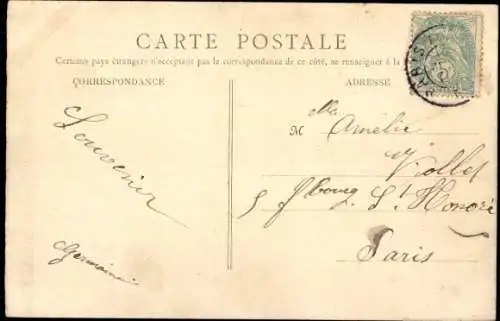 CARTE POSTALE
Certains pays étrangers n'acceptant pas la correspondance de ce côté, se renseigner à la
CORRESPONDANCE
ADRESSE
Souvenir
Germaine
Mlle
M Amélie
Viollet
5 fbourg St Honoré
Paris
PARIS